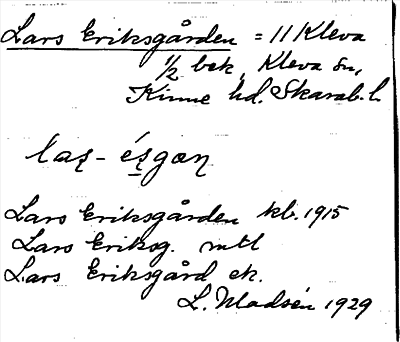 Lars Eriksgården = 11 Kleva
1/2 bek, Kleva sn,
Kinne hd. Skarab. l.
laṣ - éṣgæṇ
Lars Eriksgården kb. 1915
Lars Eriksg. mtl
Lars Eriksgård ek.
L. Madsén 1929